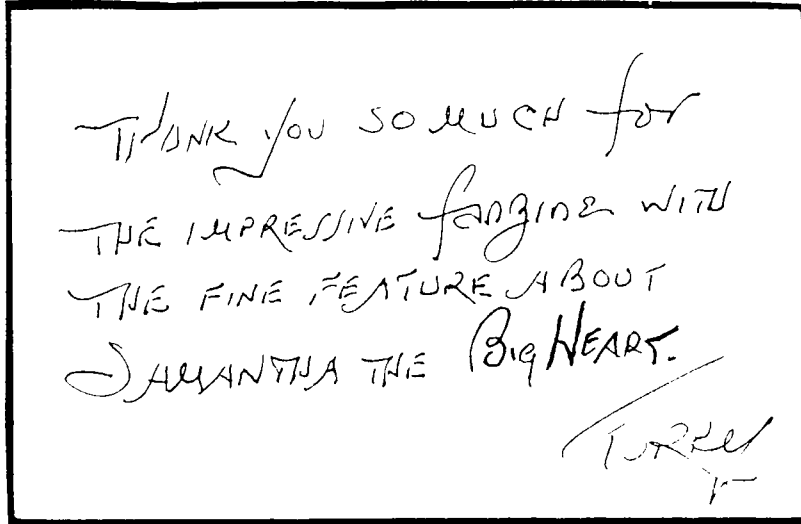 THANK YOU SO MUCH for
THE IMPRESSIVE fanzine WITH
THE FINE FEATURE ABOUT
SAMANTHA THE Big HEART.